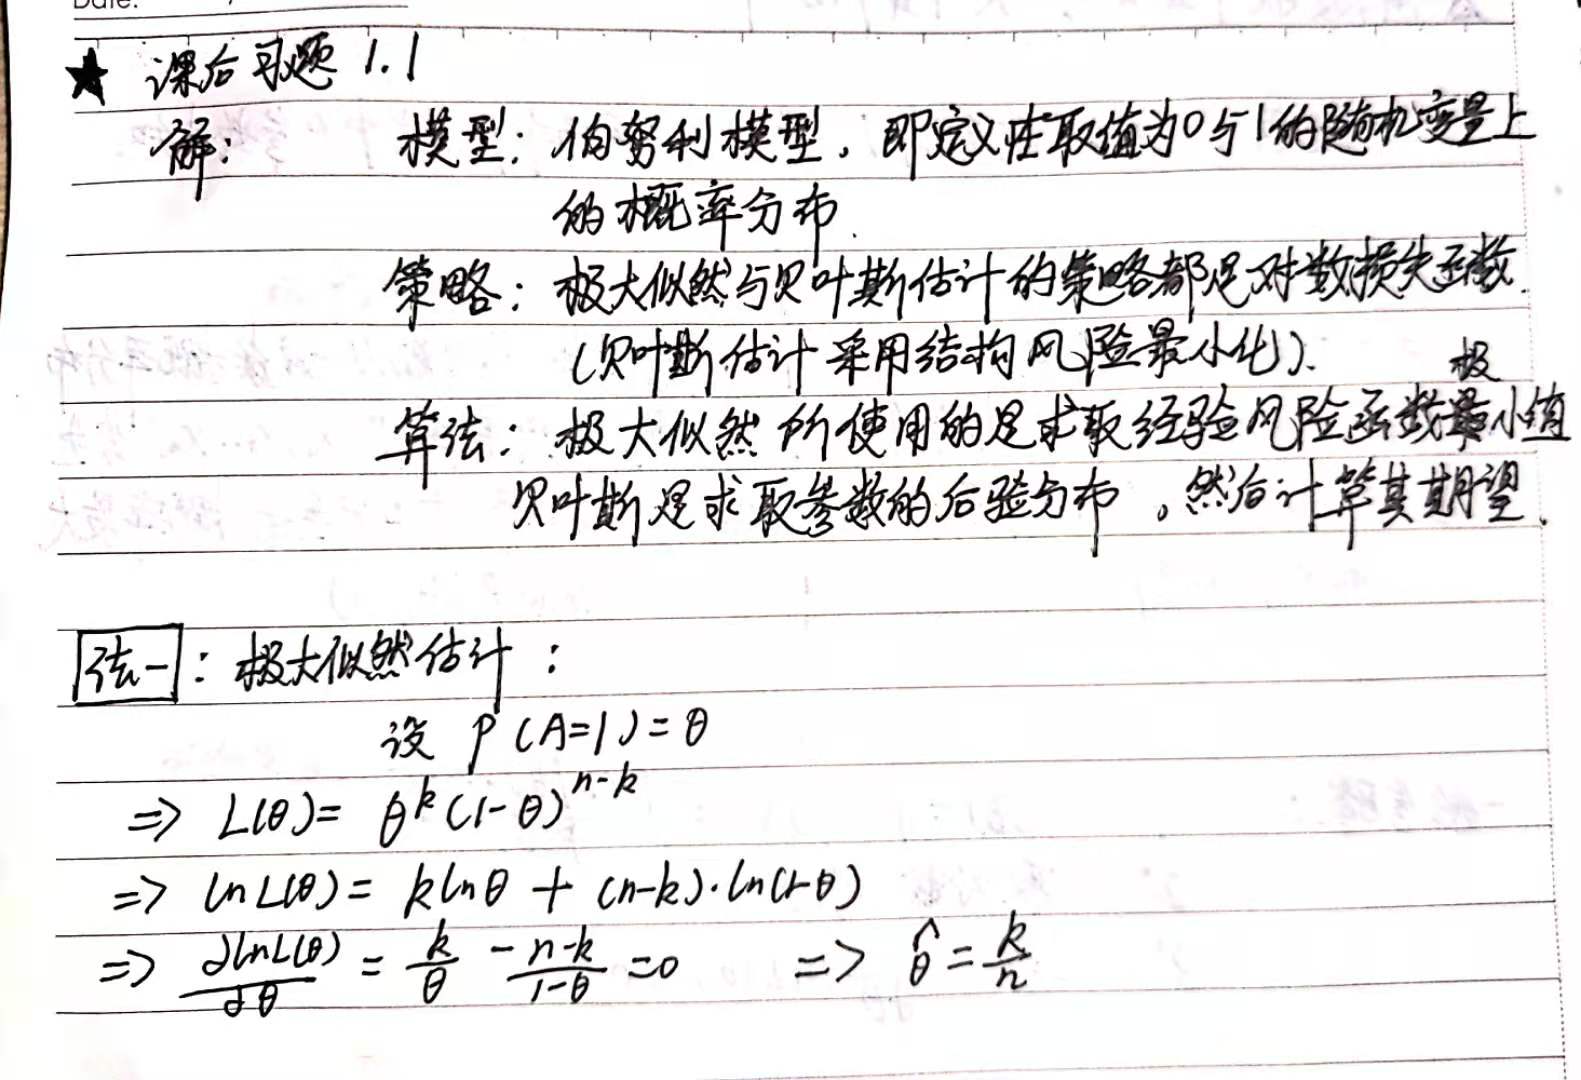 Date.
★ 课后习题 1.1
解: 模型: 伯努利模型, 即定义在取值为0与1的随机变量上
的概率分布.
策略: 极大似然与贝叶斯估计的策略都是对数损失函数.
(贝叶斯估计采用结构风险最小化).
极
算法: 极大似然所使用的是求取经验风险函数最小值
贝叶斯是求取参数的后验分布, 然后计算其期望.
法一: 极大似然估计:
设 P(A=1)=θ
=> L(θ)= θ^k (1-θ)^{n-k}
=> ln L(θ)= k ln θ + (n-k)·ln(1-θ)
=> ∂lnL(θ)/∂θ = k/θ - n-k/1-θ =0 => θ̂ = k/n